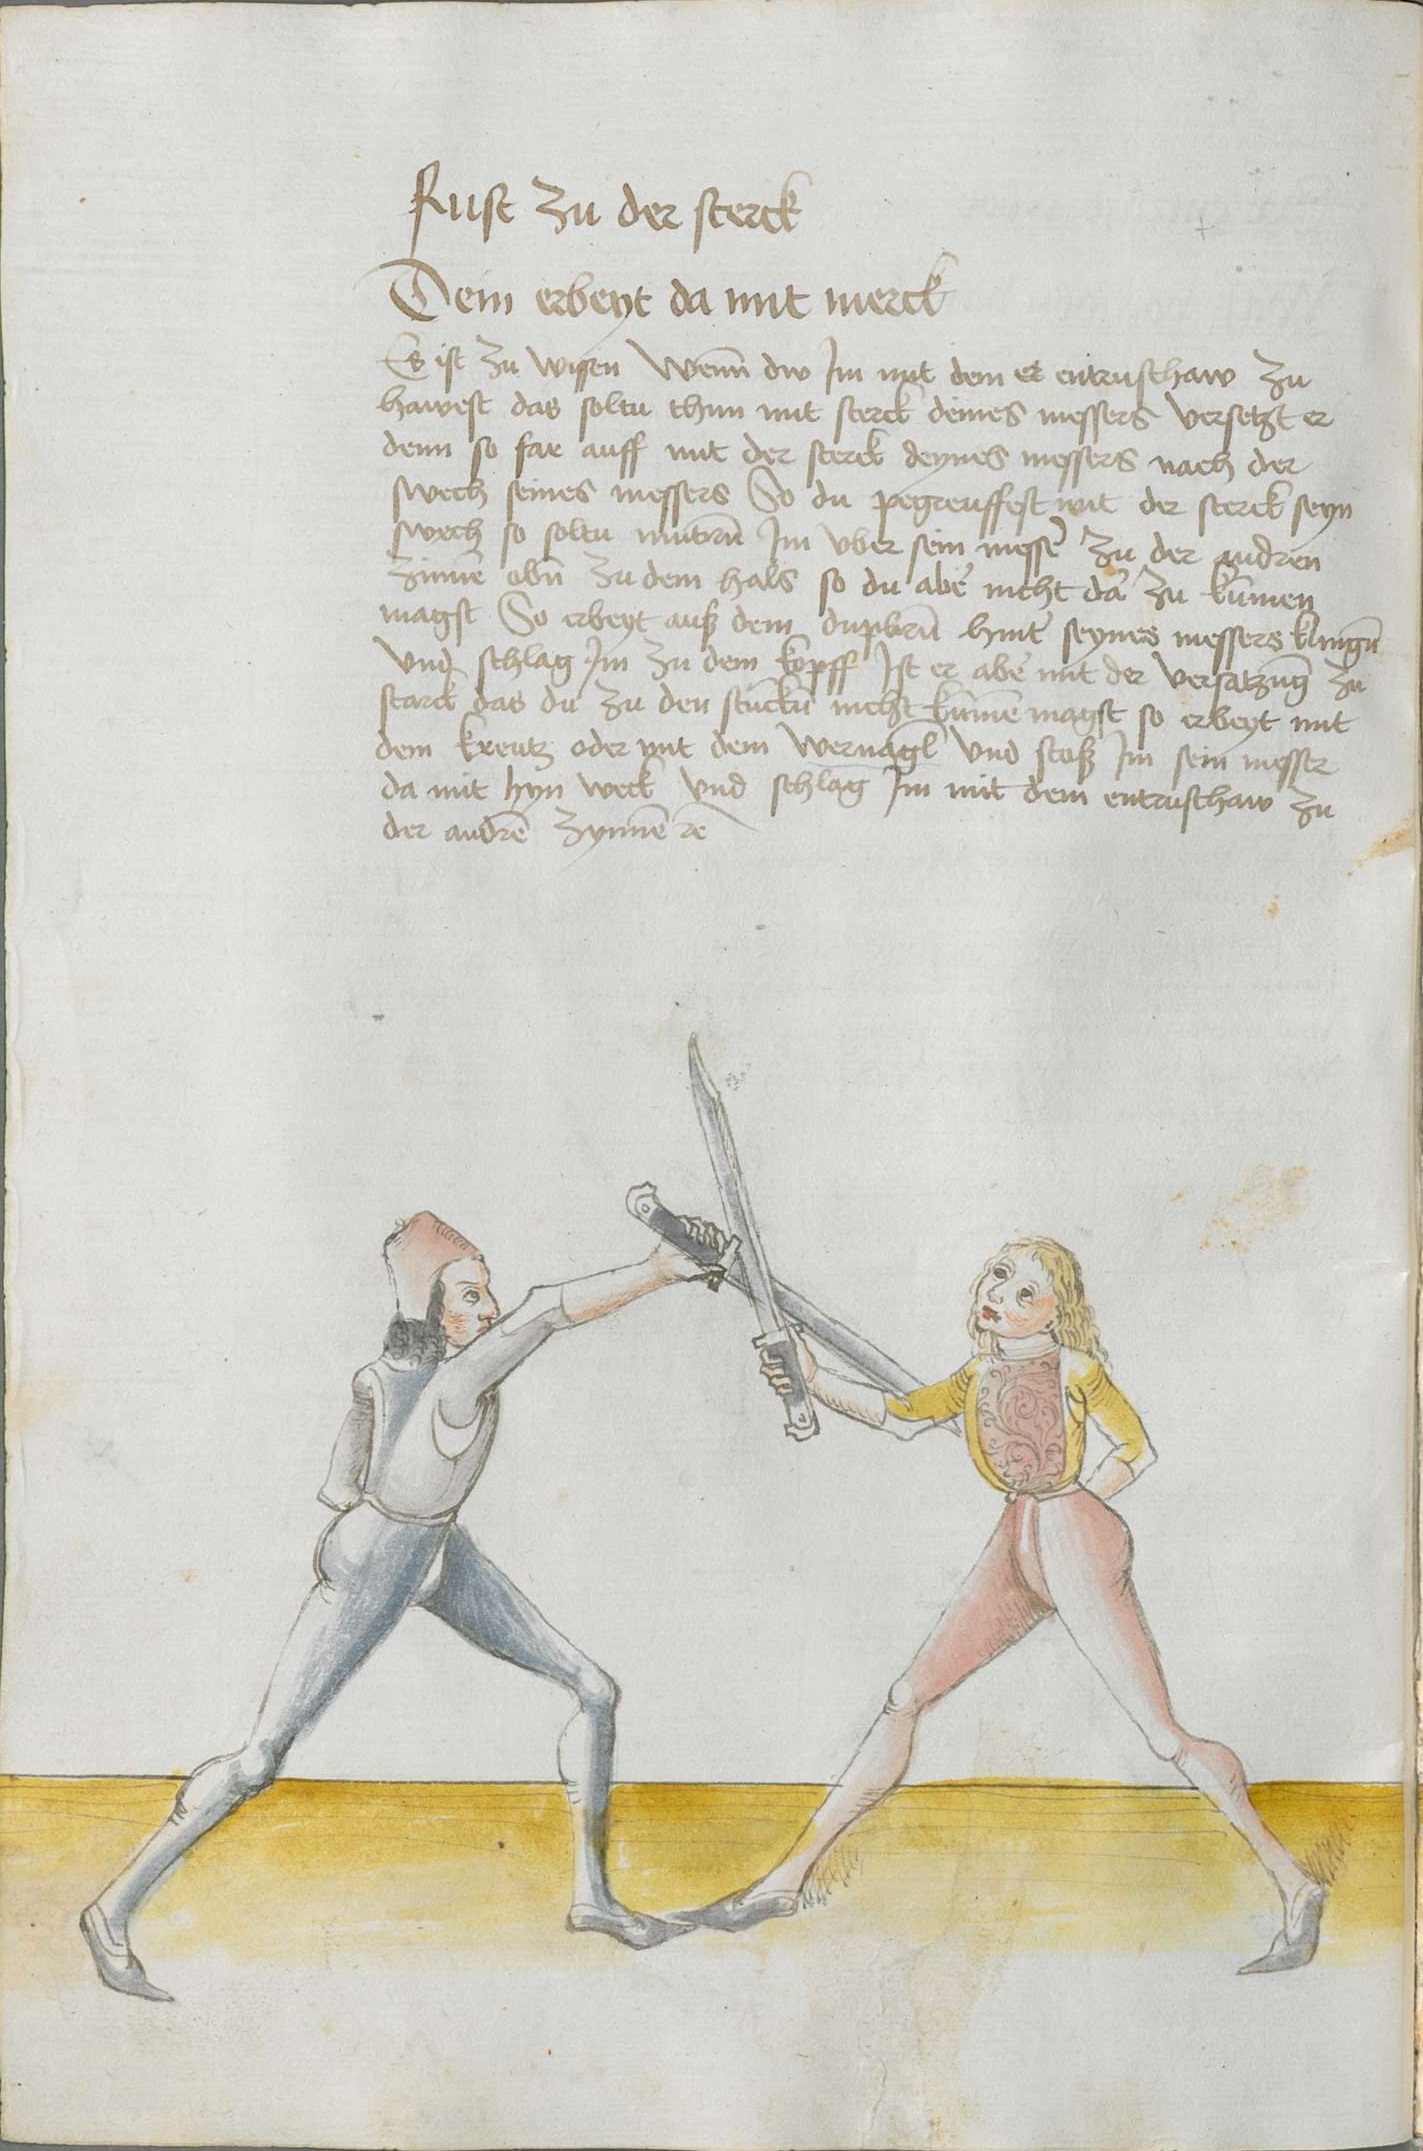 Rust zu der sterck
Dein erbeyt da mit merck
Es ist zu wissen Wenn dw Im mit dem et entrusthaw zu
hawest das soltu thun mit sterck deines messers versetzt er
denn so far auff mit der sterck deynes messers nach der
swech seines messers So du pegreuffest mit der sterck seyn
swech so soltu mutirn̄ Im vber sein messer zu der andren
zinnē obn̄ zu dem hals so du aber nicht da zu kumen
magst So erbeyt auß dem duplirn̄ hinter seynes messers klingn̄
Vnd schlag Im zu dem kopff Ist er aber mit der versatzung zu
starck das du zu den stuckn̄ nicht kumē magst so erbeyt mit
dem kreutz oder mit dem wernagl Vnd stoß Im sein messer
da mit hyn weck Vnd schlag Im mit dem entrusthaw zu
der andrē zynnē